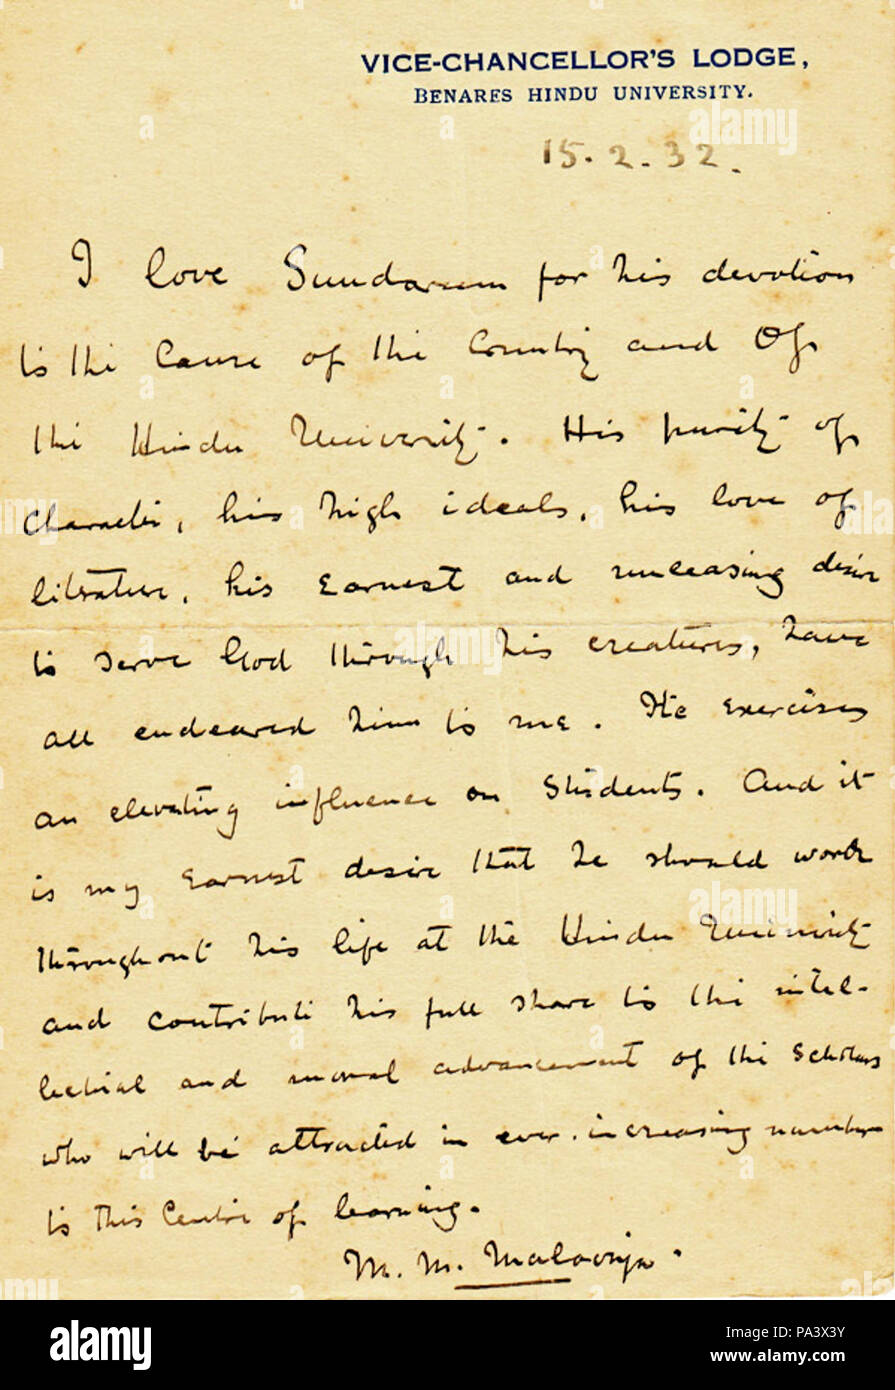 VICE-CHANCELLOR'S LODGE,
BENARES HINDU UNIVERSITY.
15.2.32.
I love Sundaram for his devotion
to the Cause of the Country and Of
the Hindu University. His purity of
character, his high ideals, his love of
literature, his Earnest and unceasing desire
to serve God through his creatures, have
all endeared him to me. He exercises
an elevating influence on Students. And it
is my Earnest desire that he should work
throughout his life at the Hindu University
and contribute his full share to the intel-
lectual and moral advancement of the Scholars
who will be attracted in ever-increasing number
to this Centre of learning.
M. M. Malaviya.
alamy
Image ID: PA3X3Y
www.alamy.com